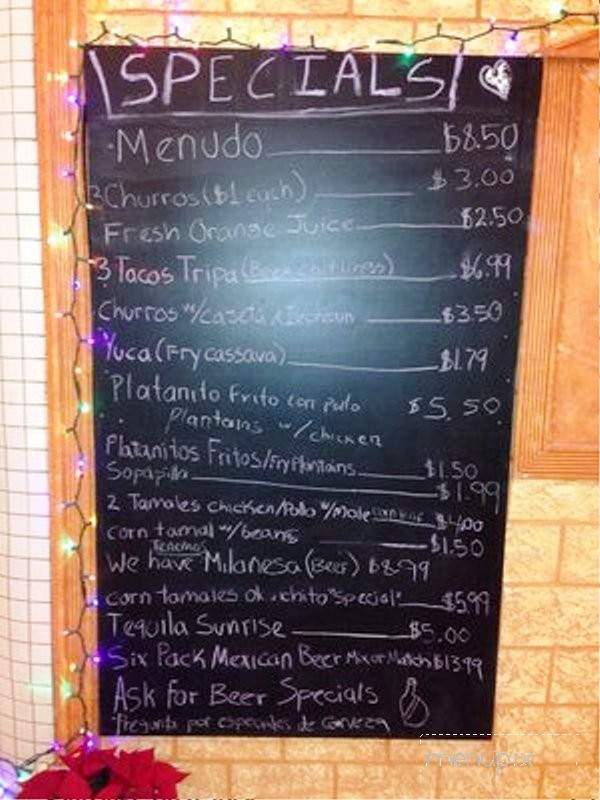 SPECIALS
Menudo $8.50
3 Churros ($1 each) $3.00
Fresh Orange Juice $2.50
3 Tacos Tripa (Beef chitlings) $6.99
Churros w/ $3.50
Yuca (Fry cassava) $1.79
Platanito Frito con Pollo $5.50
Plantains w/chicken
Platanitos Fritos/Fry Plantains $1.50
Sopapilla $1.99
2 Tamales chicken/Pollo w/Mole $4.00
corn tamal w/beans $1.50
Tenemos
We have Milanesa (Beef) $8.79
corn tamales "special" $5.99
Tequila Sunrise $5.00
Six Pack Mexican Beer Mix or Match $13.99
Ask for Beer Specials
Pregunta por especiales de cerveza
menupix